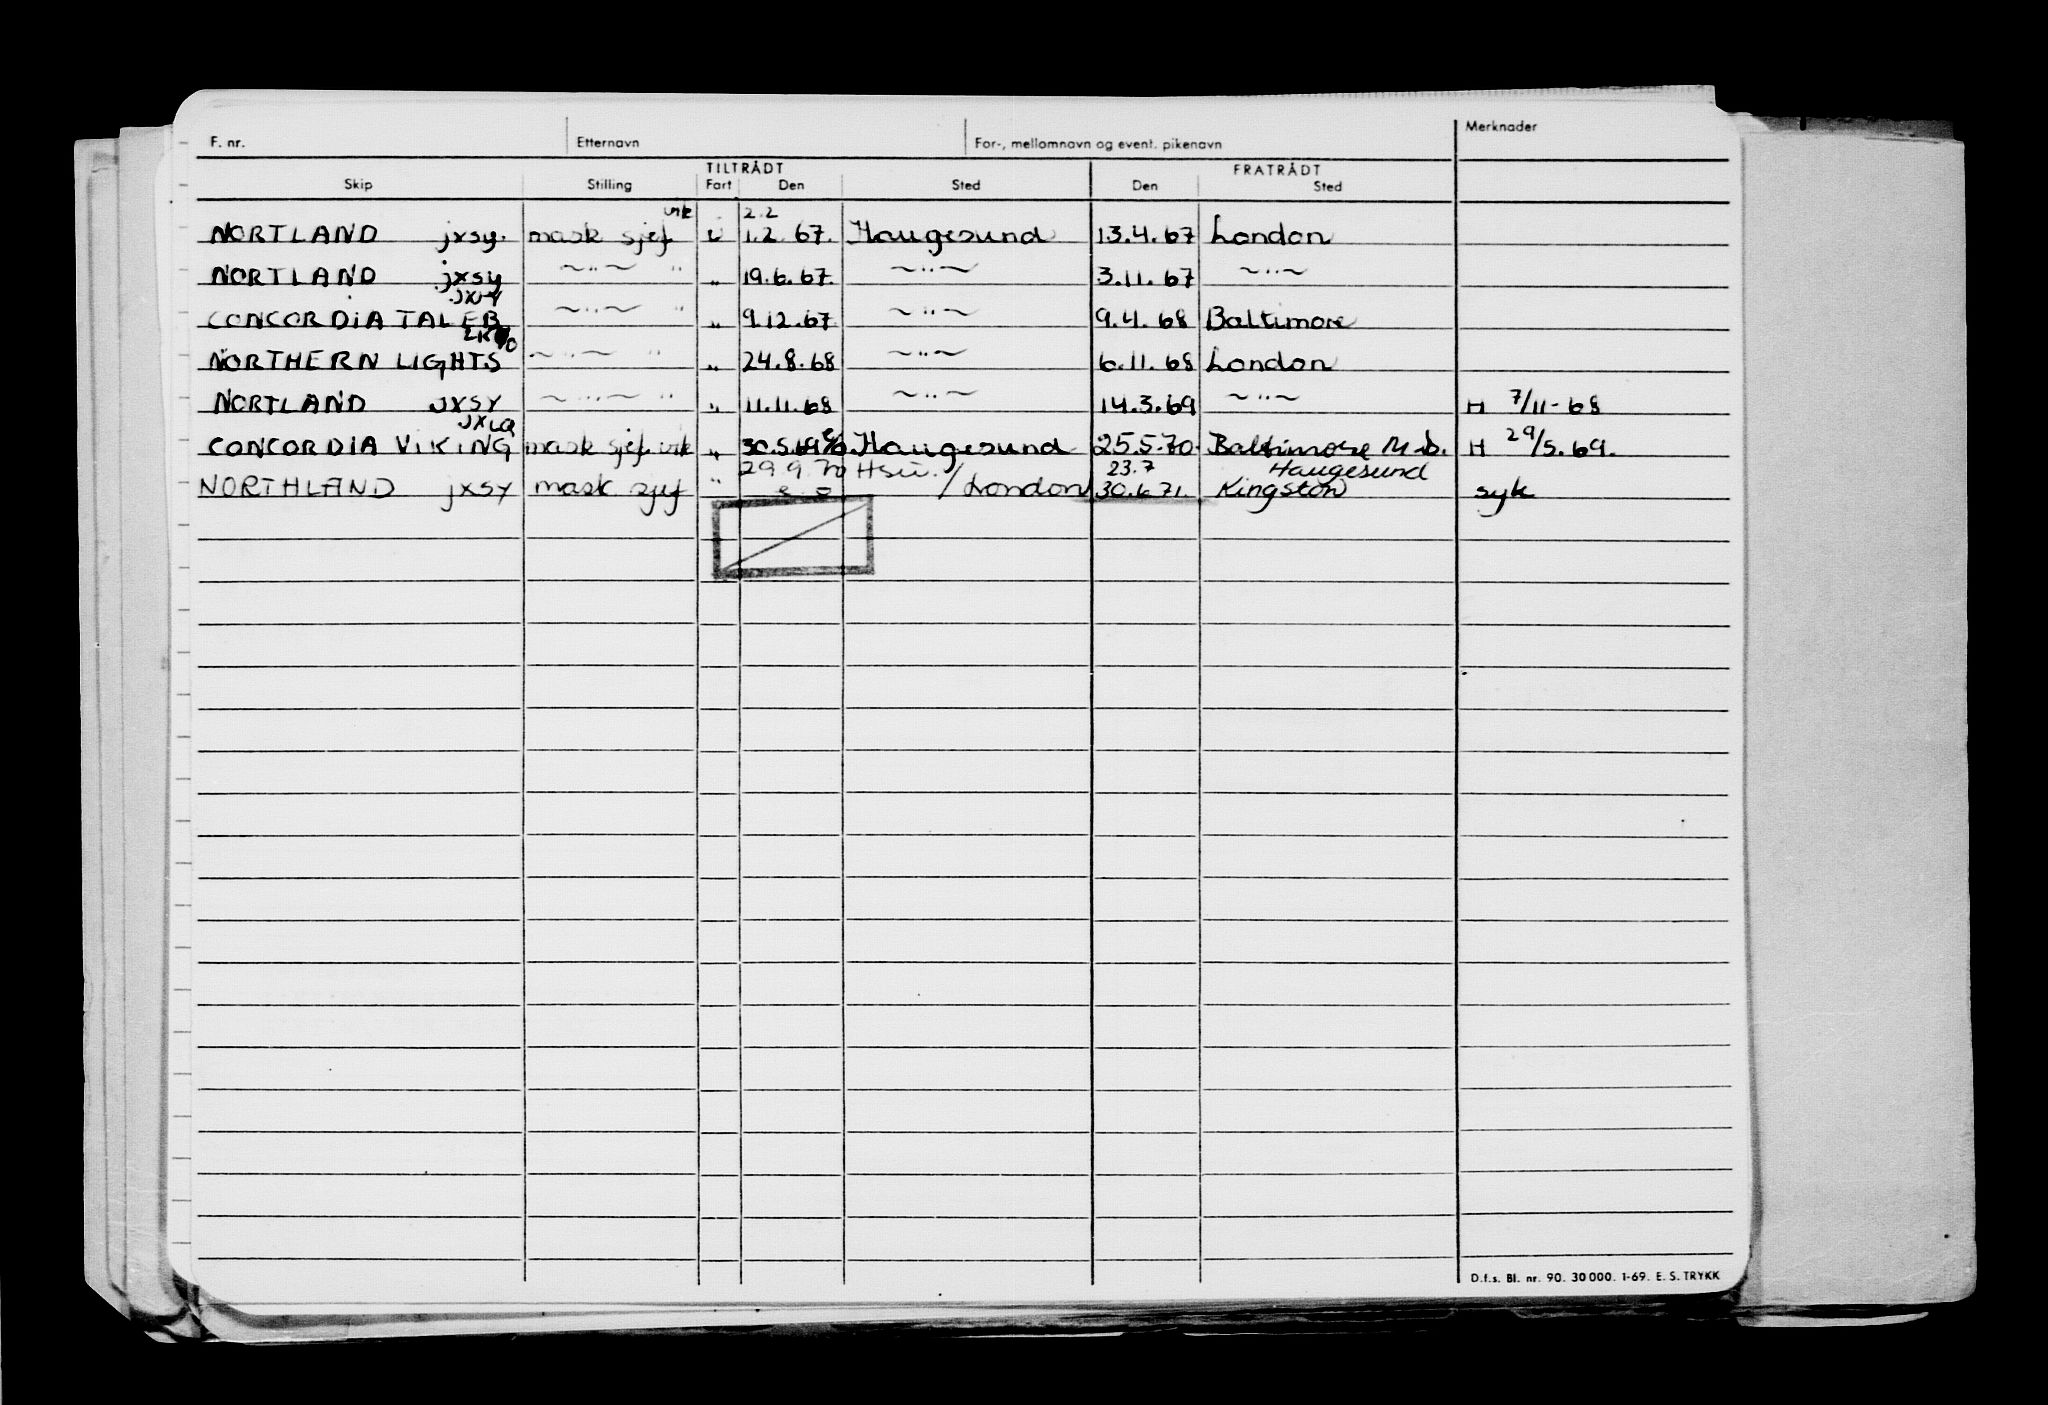 F. nr. Etternavn For-, mellomnavn og event. pikenavn Merknader
TILTRÅDT FRATRÅDT
Skip Stilling Fart Den Sted Den Sted
vik 2.2
NORTLAND jxsy. mask sjef U 1.2 67. Haugesund 13.4.67 London
NORTLAND jxsy ~"~ " " 19.6.67. ~"~ 3.11.67 ~"~
CONCORDIA TALEB ~"~ " " 9.12.67 ~"~ 9.4.68 Baltimore
NORTHERN LIGHTS ~"~ " " 24.8.68 ~"~ 6.11.68 London
NORTLAND JXSY ~"~ " " 11.11.68 ~"~ 14.3.69 ~"~ H 7/11-68
JXLQ
CONCORDIA VIKING mask sjef vik " 30.5.69 Haugesund 25.5.70. Baltimore M.d. H 29/5.69.
29.9.70 23.7 Haugesund
NORTHLAND jxsy mask sjef " /London 30.6 71. Kingston syk
D.f.s. Bl. nr. 90. 30 000. 1-69. E. S. TRYKK